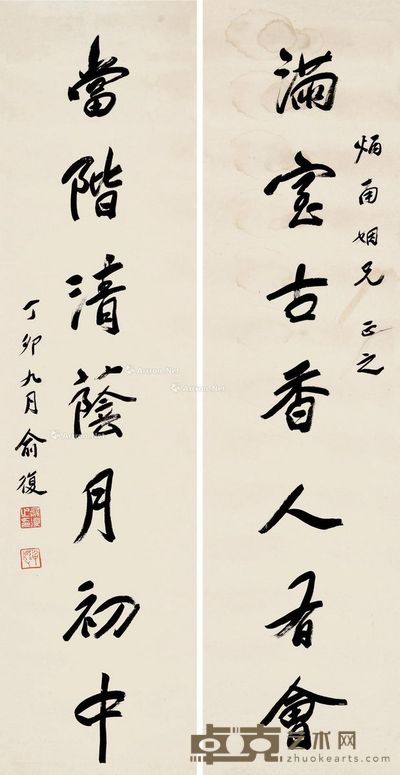 滿室古香人有會
炳南姻兄 正之
當階清蔭月初中
丁卯九月俞復
Artron.Net
Artron.Net
卓克艺术网
zhuokearts.com